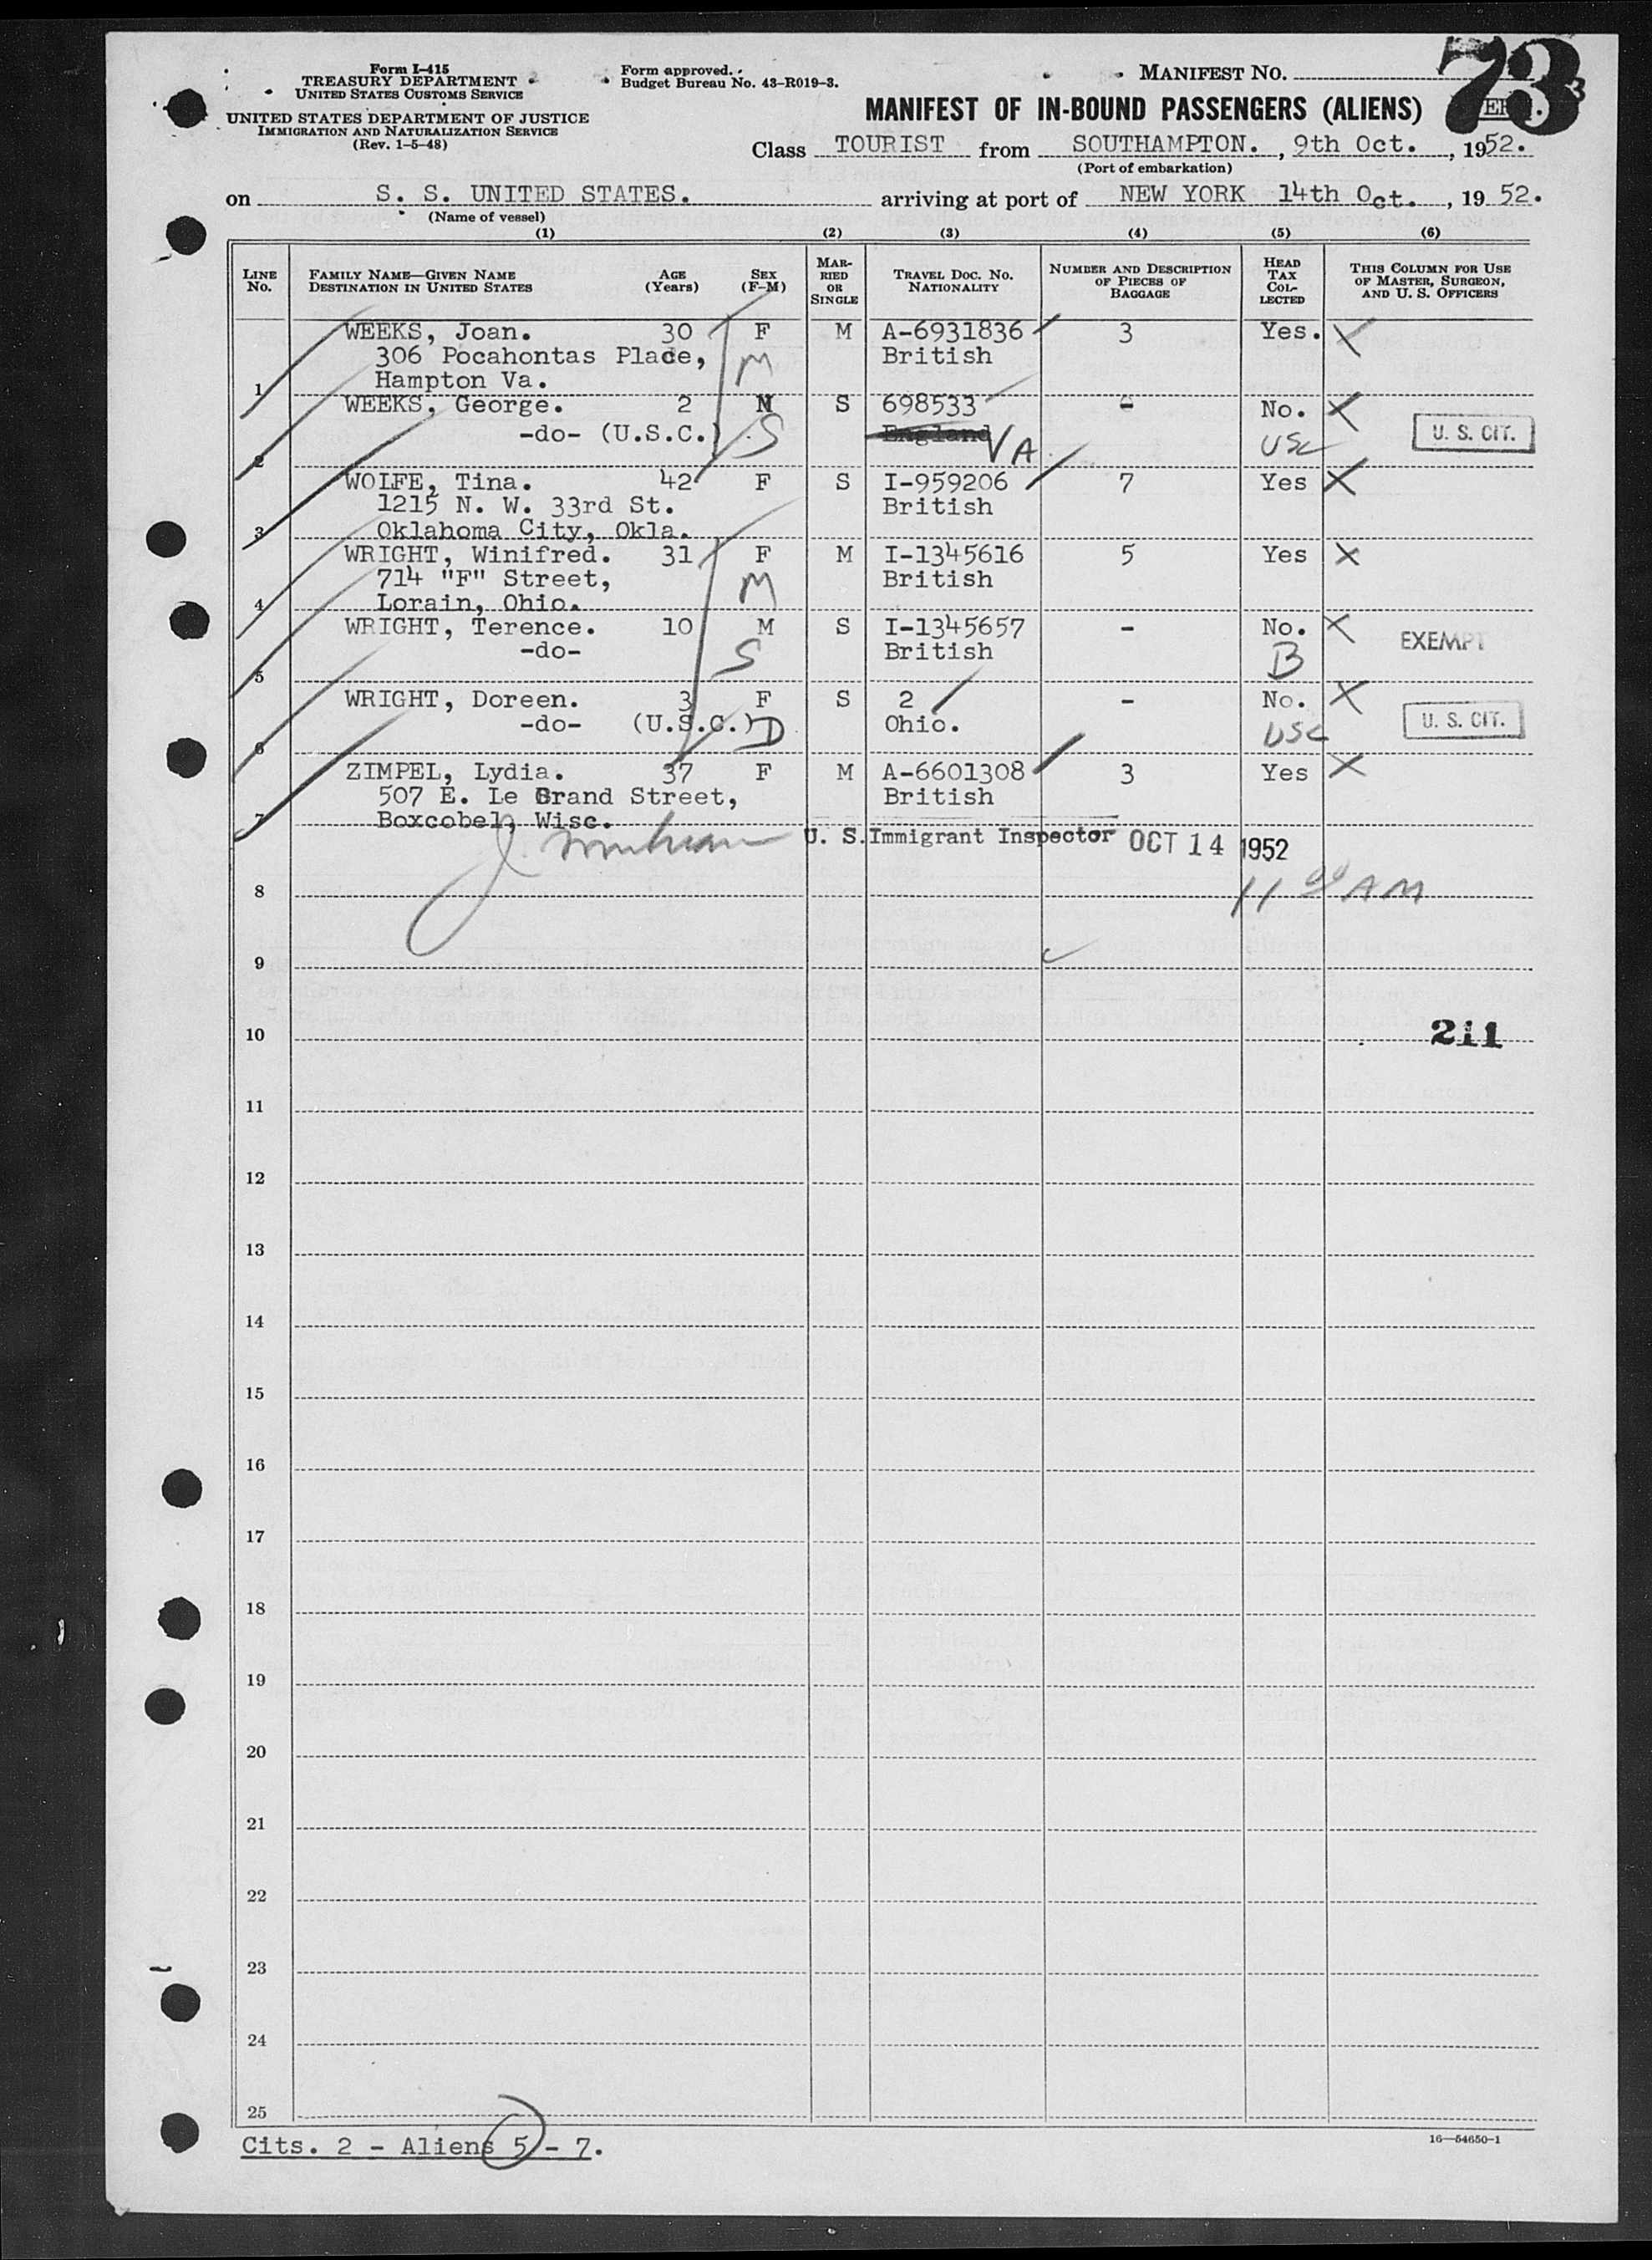 Form I-415
TREASURY DEPARTMENT
UNITED STATES CUSTOMS SERVICE
UNITED STATES DEPARTMENT OF JUSTICE
IMMIGRATION AND NATURALIZATION SERVICE
(Rev. 1-5-48)
Form approved.
Budget Bureau No. 43-R019-3.
MANIFEST NO. 73
MANIFEST OF IN-BOUND PASSENGERS (ALIENS)
Class TOURIST from SOUTHAMPTON. , 9th Oct. , 1952.
(Port of embarkation)
on S. S. UNITED STATES. arriving at port of NEW YORK 14th Oct. , 19 52.
(Name of vessel)
(1) (2) (3) (4) (5) (6)
LINE No. FAMILY NAME—GIVEN NAME DESTINATION IN UNITED STATES AGE (Years) SEX (F-M) MARRIED OR SINGLE TRAVEL DOC. NO. NATIONALITY NUMBER AND DESCRIPTION OF PIECES OF BAGGAGE HEAD TAX COLLECTED THIS COLUMN FOR USE OF MASTER, SURGEON, AND U. S. OFFICERS
WEEKS, Joan. 30 F M A-6931836 3 Yes. X
306 Pocahontas Place, M British
1 Hampton Va.
WEEKS, George. 2 M S 698533 - No. X
-do- (U.S.C.) S England VA USC U. S. CIT.
2
WOLFE, Tina. 42 F S I-959206 7 Yes X
1215 N. W. 33rd St. British
3 Oklahoma City, Okla.
WRIGHT, Winifred. 31 F M I-1345616 5 Yes X
714 "F" Street, M British
4 Lorain, Ohio.
WRIGHT, Terence. 10 M S I-1345657 - No. X EXEMPT
-do- S British B
5
WRIGHT, Doreen. 3 F S 2 - No. X
-do- (U.S.C.) D Ohio. USC U. S. CIT.
6
ZIMPEL, Lydia. 37 F M A-6601308 3 Yes X
507 E. Le Grand Street, British
7 Boxcobel, Wisc.
U. S. Immigrant Inspector OCT 14 1952
8 11 00 AM
9
10 211
11
12
13
14
15
16
17
18
19
20
21
22
23
24
25
Cits. 2 - Aliens 5 - 7.
16—54650-1